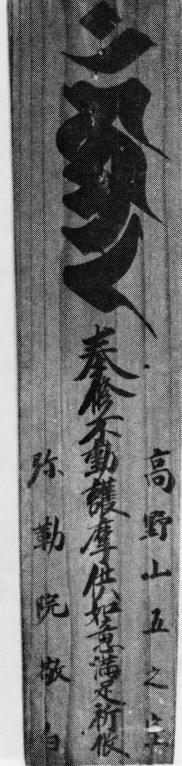 高野山五之室
奉修不動護摩供如意満足祈攸
弥勒院敬白